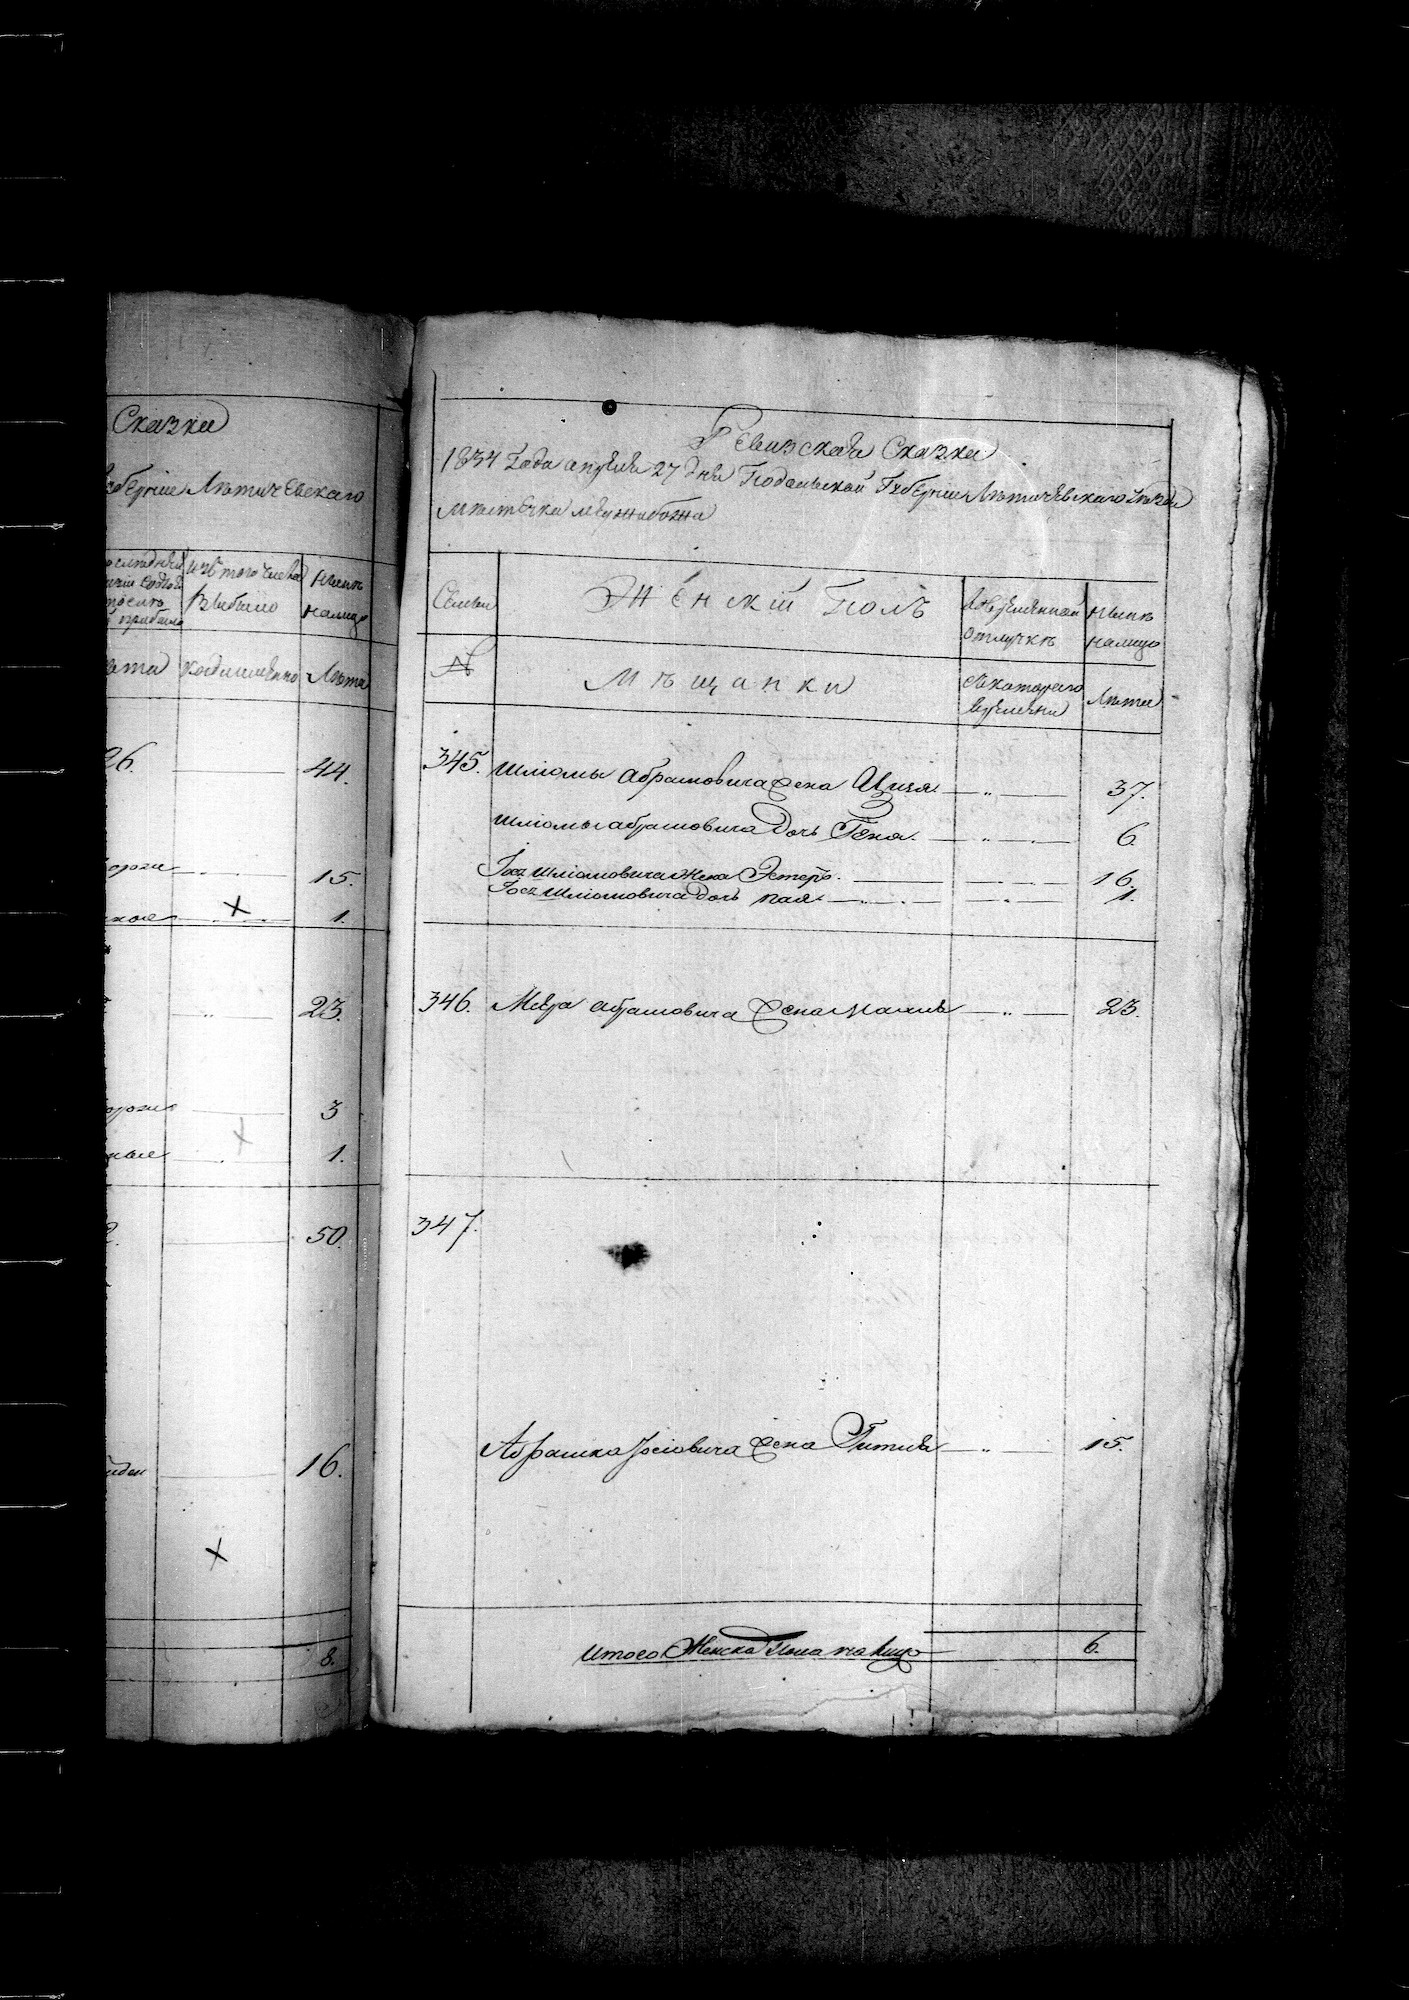 Сказки
Губернiи Лѣтичевскаго
изъ того числа Нынѣ
Выбыло налицо
лѣта когда именно Лѣта
26. 44.
15.
1.
23.
3
1.
50.
16.
8.
Ревизская Сказка
1834 Года апреля 27 дня Подольской Губернiи Лѣтичевского уѣзда
мѣстечка Межибожа
Семьи Женскiй Полъ Вовременной отлучкѣ Нынѣ налицо
№ Мѣщанки Съкотораго времени Лѣта
345. Шлiомы Абрамовича жена Ципя 37.
Шлiомы абрамовича дочь Гена 6
Iось Шлiомовича жена Эстеръ 16.
Iось Шлiомовича дочь пая 1.
346. Меер абрамовича жена 23.
347.
Абрамка Iосiовича жена Гитля 15.
Итого Женска Пола на лицо 6.